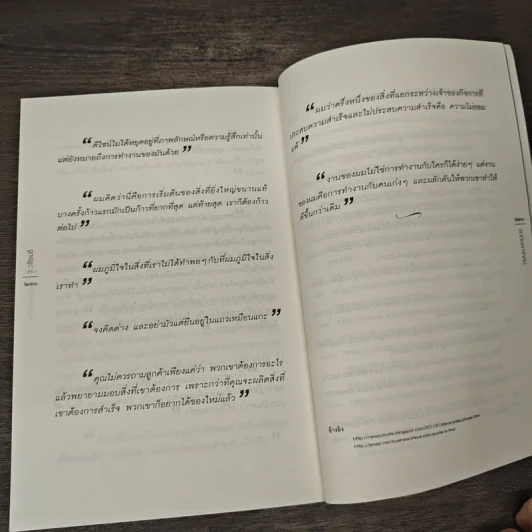 “ดีไซน์ไม่ได้หยุดอยู่ที่ภาพลักษณ์หรือความรู้สึกเท่านั้น
แต่ยังหมายถึงการทำงานของมันด้วย”
“ผมคิดว่านี่คือการเริ่มต้นของสิ่งที่ยิ่งใหญ่ขนานแท้
บางครั้งก้าวแรกมักเป็นก้าวที่ยากที่สุด แต่ท้ายสุด เราก็ต้องก้าว
ต่อไป”
“ผมภูมิใจในสิ่งที่เราไม่ได้ทำพอๆ กับที่ผมภูมิใจในสิ่ง
เราทำ”
“จงคิดต่าง และอย่ามัวแต่ยืนอยู่ในแถวเหมือนแกะ”
“คุณไม่ควรถามลูกค้าเพียงแค่ว่า พวกเขาต้องการอะไร
แล้วพยายามมอบสิ่งที่เขาต้องการ เพราะกว่าที่คุณจะผลิตสิ่งที่
เขาต้องการสำเร็จ พวกเขาก็อยากได้ของใหม่แล้ว”
๒๓๐
“ผมว่าครึ่งหนึ่งของสิ่งที่แยกระหว่างเจ้าของกิจการที่
ประสบความสำเร็จและไม่ประสบความสำเร็จคือ ความไม่ยอม
แพ้”
“งานของผมไม่ใช่การทำงานกับใครก็ได้ง่ายๆ แต่งาน
ของผมคือการทำงานกับคนเก่งๆ และผลักดันให้พวกเขาทำให้
ดีขึ้นกว่าเดิม”
๒๓๑
อ้างอิง